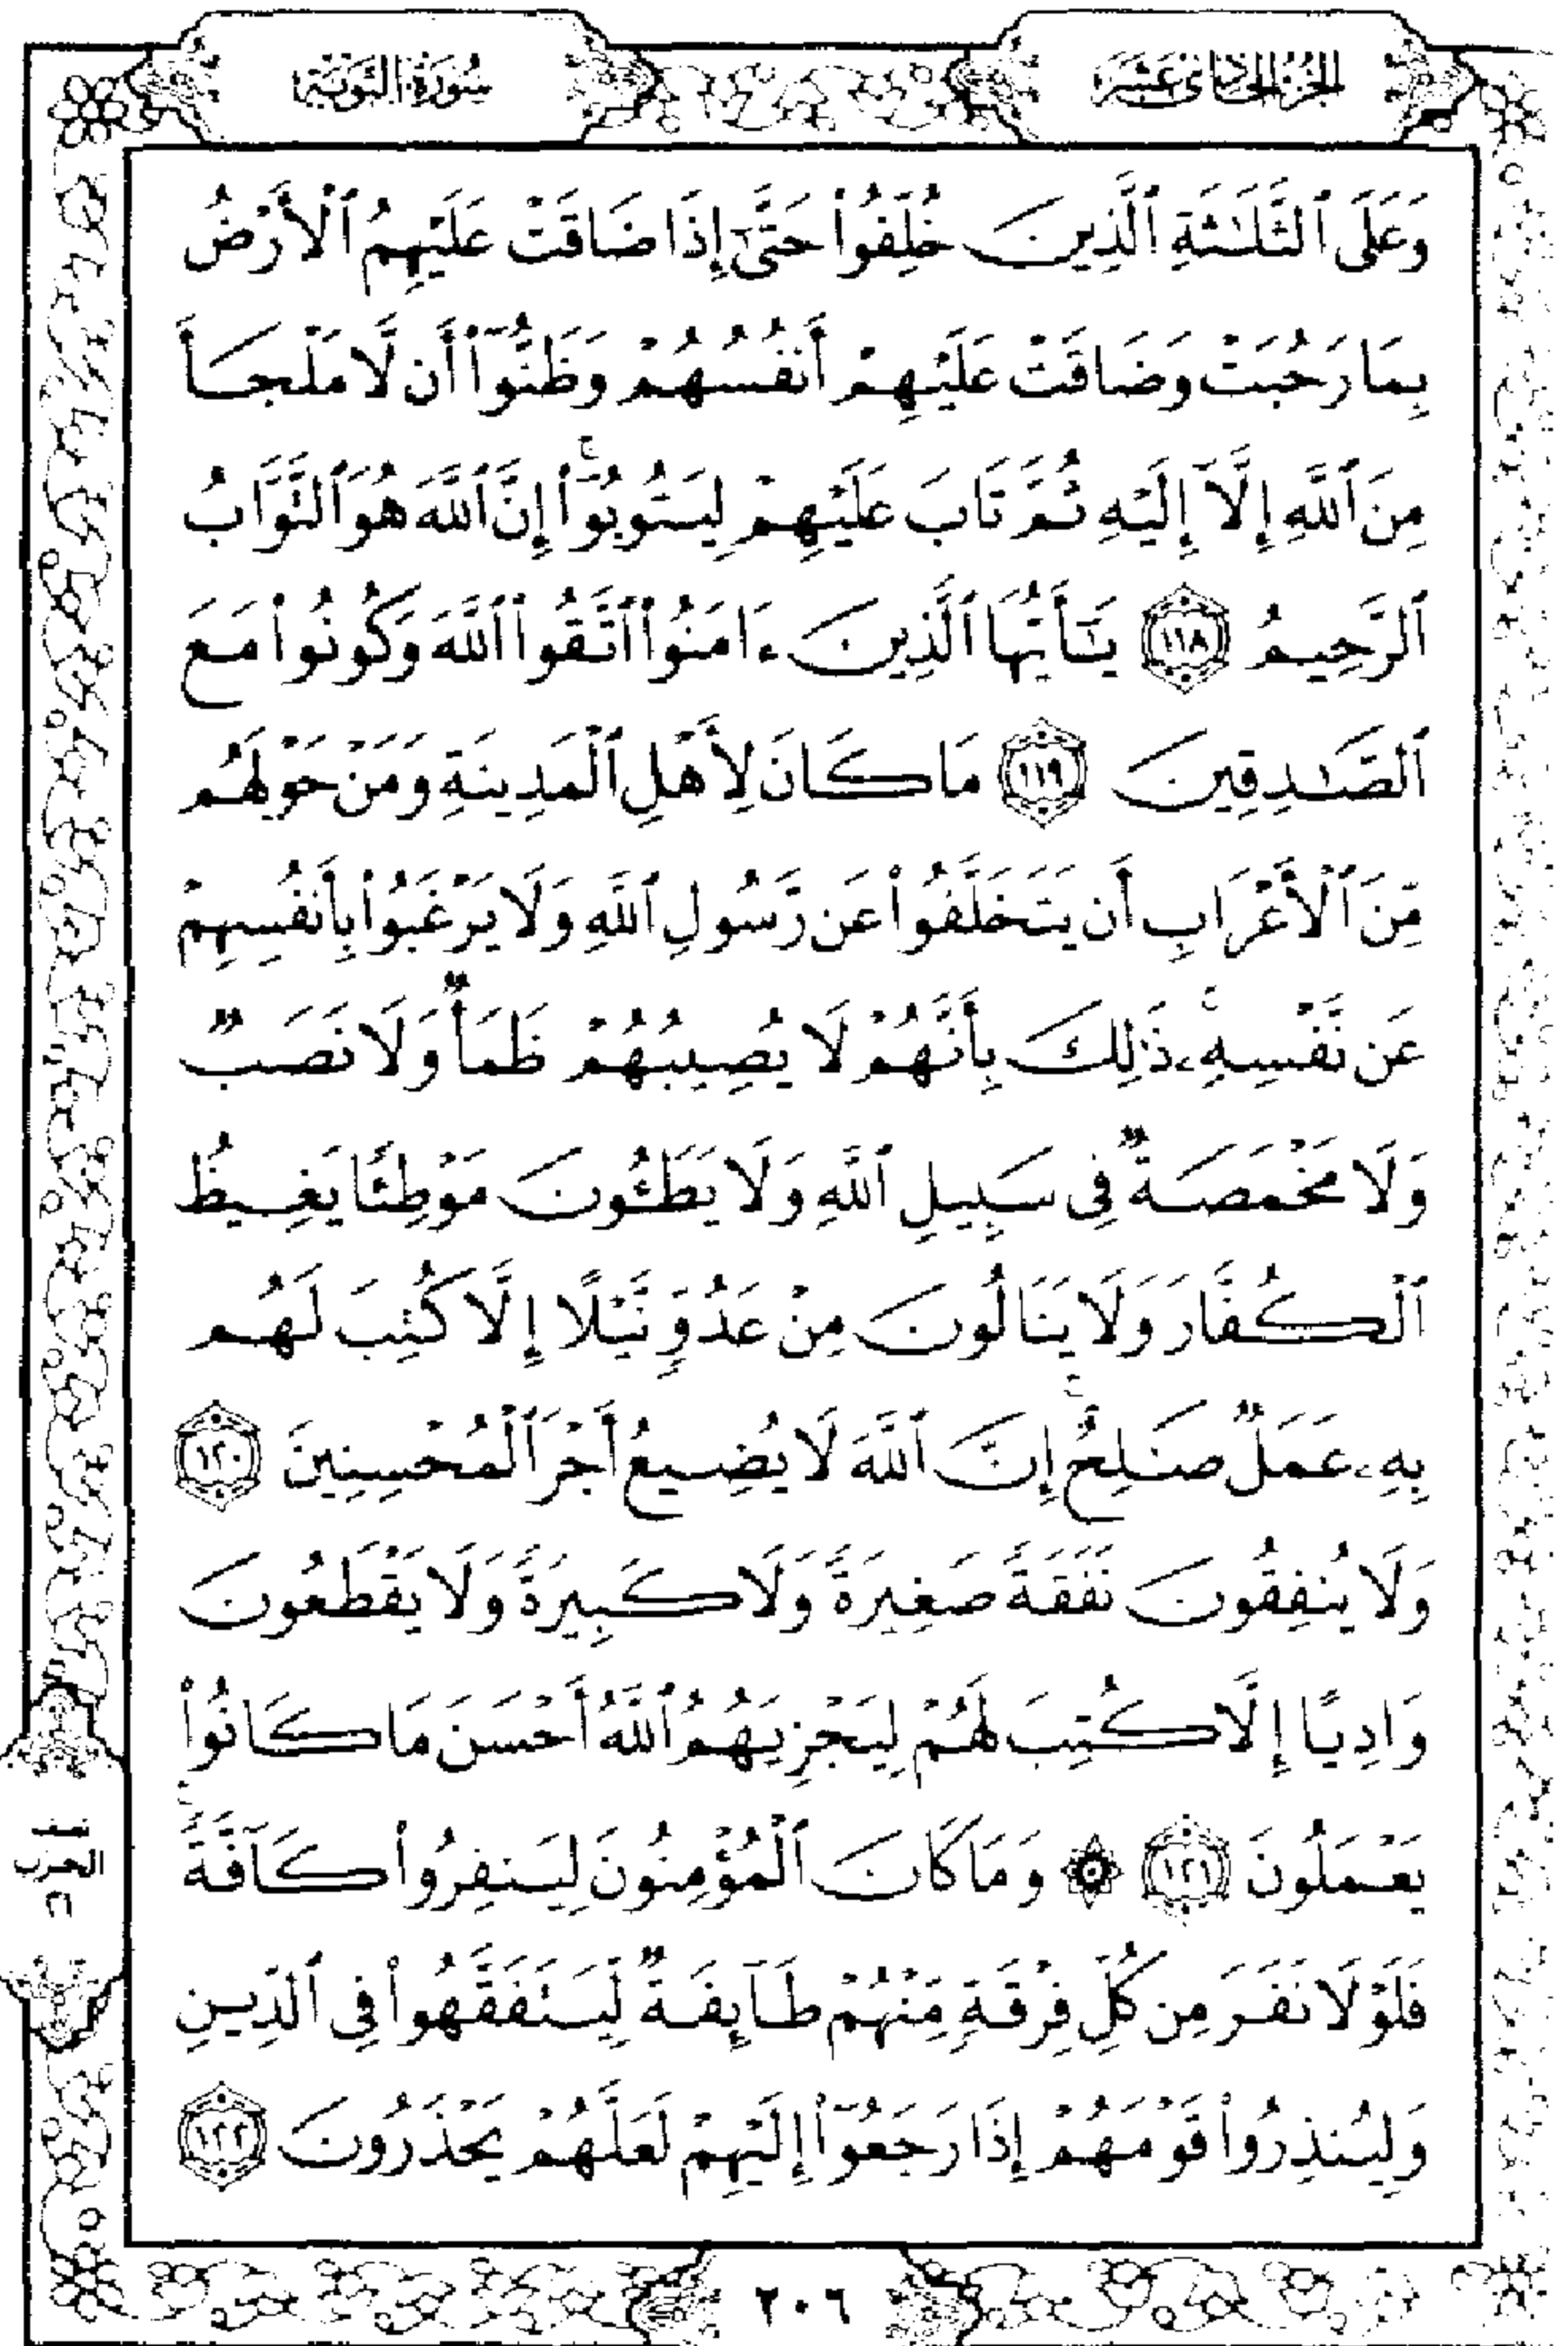 الجزء الحادي عشر
سورة التوبة
وَعَلَى ٱلثَّلَـٰثَةِ ٱلَّذِينَ خُلِّفُوا۟ حَتَّىٰٓ إِذَا ضَاقَتْ عَلَيْهِمُ ٱلْأَرْضُ
بِمَا رَحُبَتْ وَضَاقَتْ عَلَيْهِمْ أَنفُسُهُمْ وَظَنُّوٓا۟ أَن لَّا مَلْجَأَ
مِنَ ٱللَّهِ إِلَّآ إِلَيْهِ ثُمَّ تَابَ عَلَيْهِمْ لِيَتُوبُوٓا۟ ۚ إِنَّ ٱللَّهَ هُوَ ٱلتَّوَّابُ
ٱلرَّحِيمُ ١١٨ يَـٰٓأَيُّهَا ٱلَّذِينَ ءَامَنُوا۟ ٱتَّقُوا۟ ٱللَّهَ وَكُونُوا۟ مَعَ
ٱلصَّـٰدِقِينَ ١١٩ مَا كَانَ لِأَهْلِ ٱلْمَدِينَةِ وَمَنْ حَوْلَهُم
مِّنَ ٱلْأَعْرَابِ أَن يَتَخَلَّفُوا۟ عَن رَّسُولِ ٱللَّهِ وَلَا يَرْغَبُوا۟ بِأَنفُسِهِمْ
عَن نَّفْسِهِۦ ۚ ذَٰلِكَ بِأَنَّهُمْ لَا يُصِيبُهُمْ ظَمَأٌ وَلَا نَصَبٌ
وَلَا مَخْمَصَةٌ فِى سَبِيلِ ٱللَّهِ وَلَا يَطَـُٔونَ مَوْطِئًا يَغِيظُ
ٱلْكُفَّارَ وَلَا يَنَالُونَ مِنْ عَدُوٍّ نَّيْلًا إِلَّا كُتِبَ لَهُم
بِهِۦ عَمَلٌ صَـٰلِحٌ ۚ إِنَّ ٱللَّهَ لَا يُضِيعُ أَجْرَ ٱلْمُحْسِنِينَ ١٢٠
وَلَا يُنفِقُونَ نَفَقَةً صَغِيرَةً وَلَا كَبِيرَةً وَلَا يَقْطَعُونَ
وَادِيًا إِلَّا كُتِبَ لَهُمْ لِيَجْزِيَهُمُ ٱللَّهُ أَحْسَنَ مَا كَانُوا۟
يَعْمَلُونَ ١٢١ ۞ وَمَا كَانَ ٱلْمُؤْمِنُونَ لِيَنفِرُوا۟ كَآفَّةً ۚ
فَلَوْلَا نَفَرَ مِن كُلِّ فِرْقَةٍ مِّنْهُمْ طَآئِفَةٌ لِّيَتَفَقَّهُوا۟ فِى ٱلدِّينِ
وَلِيُنذِرُوا۟ قَوْمَهُمْ إِذَا رَجَعُوٓا۟ إِلَيْهِمْ لَعَلَّهُمْ يَحْذَرُونَ ١٢٢
الحزب
٢٠٦